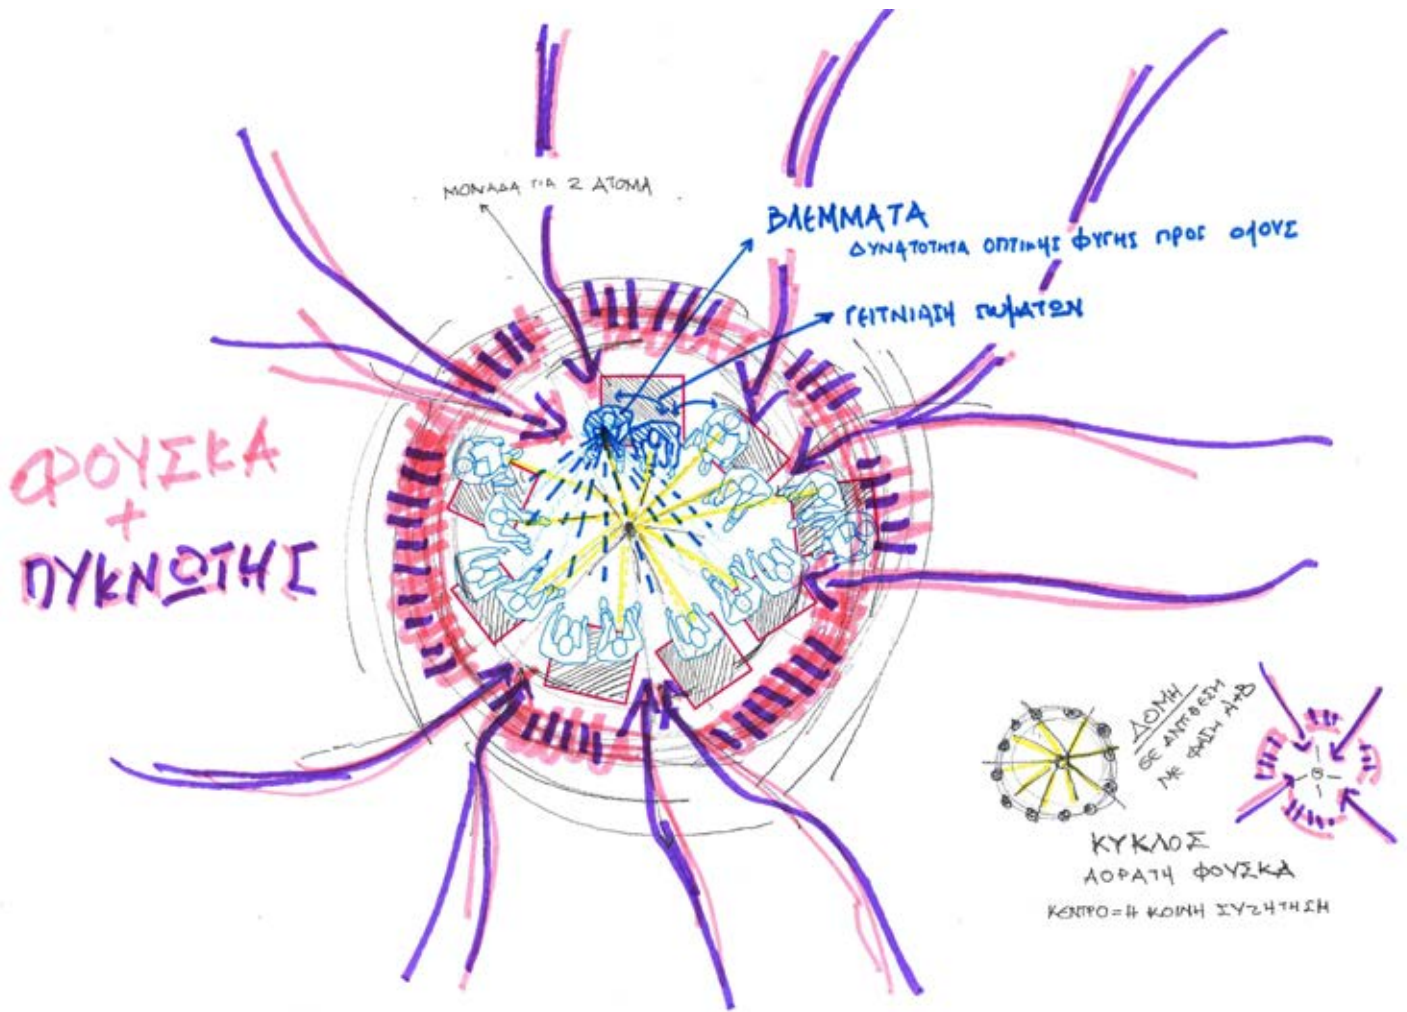 ΜΟΝΑΔΑ ΓΙΑ 2 ΑΤΟΜΑ
ΒΛΕΜΜΑΤΑ
ΔΥΝΑΤΟΤΗΤΑ ΟΠΤΙΚΗΣ ΦΥΓΗΣ ΠΡΟΣ ΟΛΟΥΣ
ΓΕΙΤΝΙΑΣΗ ΣΩΜΑΤΩΝ
ΦΟΥΣΚΑ
+
ΠΥΚΝΩΤΗΣ
ΔΟΜΗ
ΣΕ ΑΝΤΙΘΕΣΗ
ΜΕ ΦΑΣΗ Α+Β
ΚΥΚΛΟΣ
ΑΟΡΑΤΗ ΦΟΥΣΚΑ
ΚΕΝΤΡΟ = Η ΚΟΙΝΗ ΣΥΖΗΤΗΣΗ